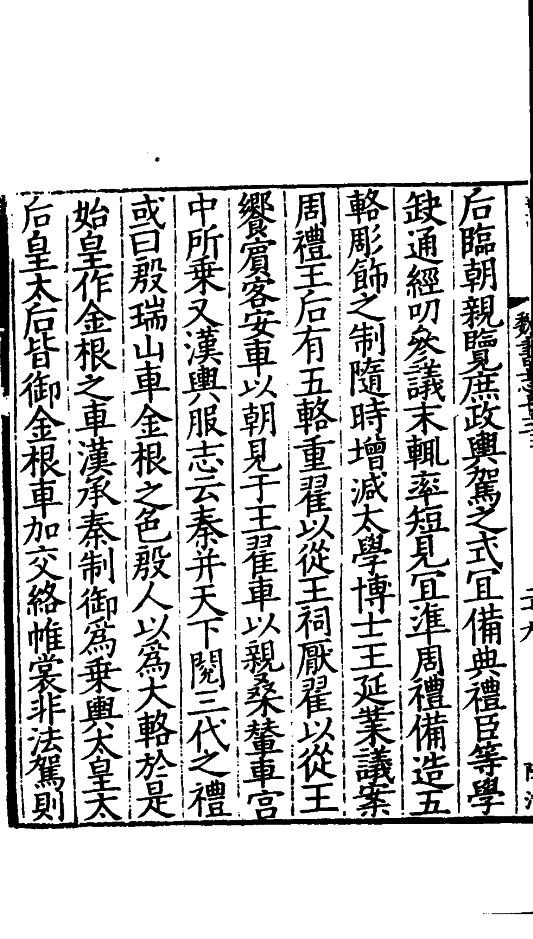 后臨朝親覽庶政輿駕之式宜備典禮臣等學
缺通經叨叅議末輒率短見宜準周禮備造五
輅彫飾之制隨時增減太學博士王延業議案
周禮王后有五輅重翟以從王祠厭翟以從王
饗賓客安車以朝見于王翟車以親桑輦車宮
中所乗又漢輿服志云秦并天下閱三代之禮
或曰殷瑞山車金根之色殷人以為大輅於是
始皇作金根之車漢承秦制御為乗輿太皇太
后皇太后皆御金根車加交絡帷裳非法駕則